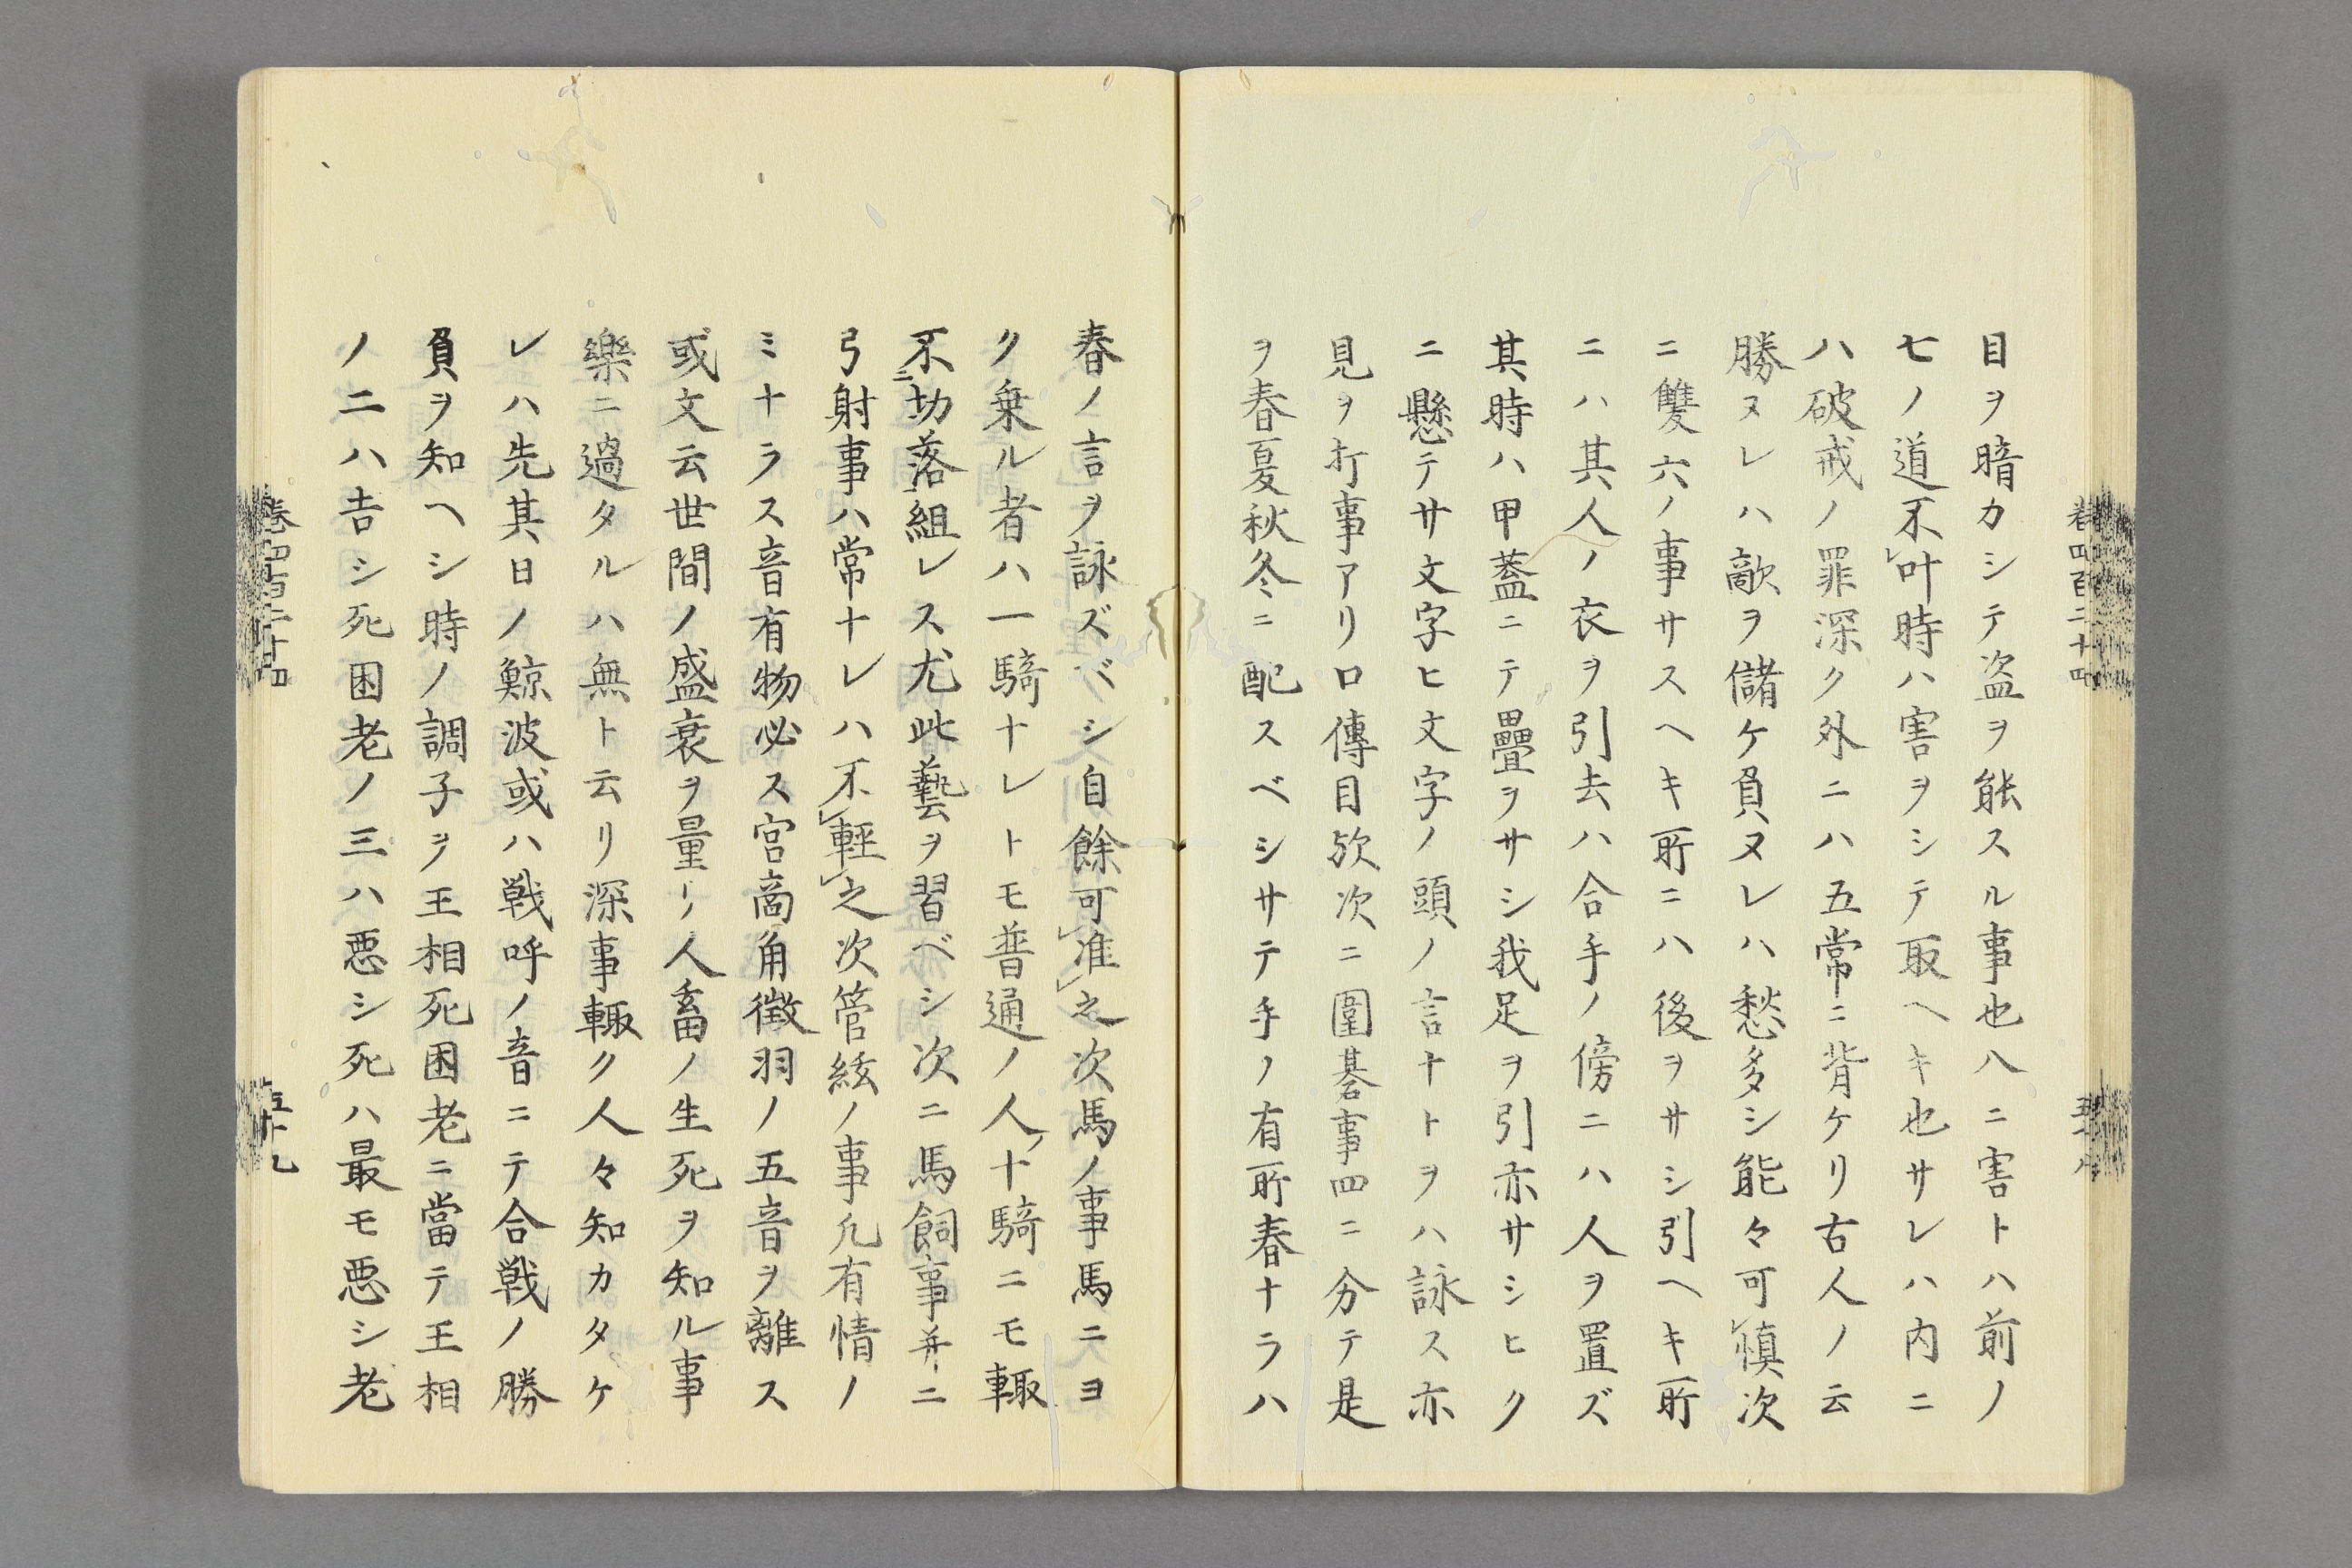 目ヲ暗カシテ盗ヲ能スル事也八ニ害トハ前ノ
七ノ道不㆑叶時ハ害ヲシテ取ヘキ也サレハ内ニ
ハ破戒ノ罪深ク外ニハ五常ニ背ケリ古人ノ云
勝ヌレハ敵ヲ儲ケ負ヌレハ愁多シ能々可㆑慎次
ニ雙六ノ事サスヘキ所ニハ後ヲサシ引ヘキ所
ニハ其人ノ衣ヲ引去ハ合手ノ傍ニハ人ヲ置ズ
其時ハ甲蓋ニテ疊ヲサシ我足ヲ引亦サシヒク
ニ懸テサ文字ヒ文字ノ頭ノ言ナトヲハ詠ス亦
見ヲ打事アリ口傳目欤次ニ圍碁事四ニ分テ是
ヲ春夏秋冬ニ配スベシサテ手ノ有所春ナラハ
春ノ言ヲ詠ズベシ自餘可㆑准㆑之次馬ノ事馬ニヨ
ク乗ル者ハ一騎ナレトモ普通ノ人ノ十騎ニモ輙
不㆓切落組㆒レス尤此藝ヲ習ベシ次ニ馬飼事并ニ
弓射事ハ常ナレハ不㆑輕㆑之次管絃ノ事凡有情ノ
ミナラス音有物必ス宮商角徴羽ノ五音ヲ離ス
或文云世間ノ盛衰ヲ量リ人畜ノ生死ヲ知ル事
樂ニ過タルハ無ト云リ深事輙ク人々知カタケ
レハ先其日ノ鯨波或ハ戦呼ノ音ニテ合戦ノ勝
負ヲ知ヘシ時ノ調子ヲ王相死困老ニ當テ王相
ノ二ハ吉シ死困老ノ三ハ悪シ死ハ最モ悪シ老
巻四百二十四
五十九